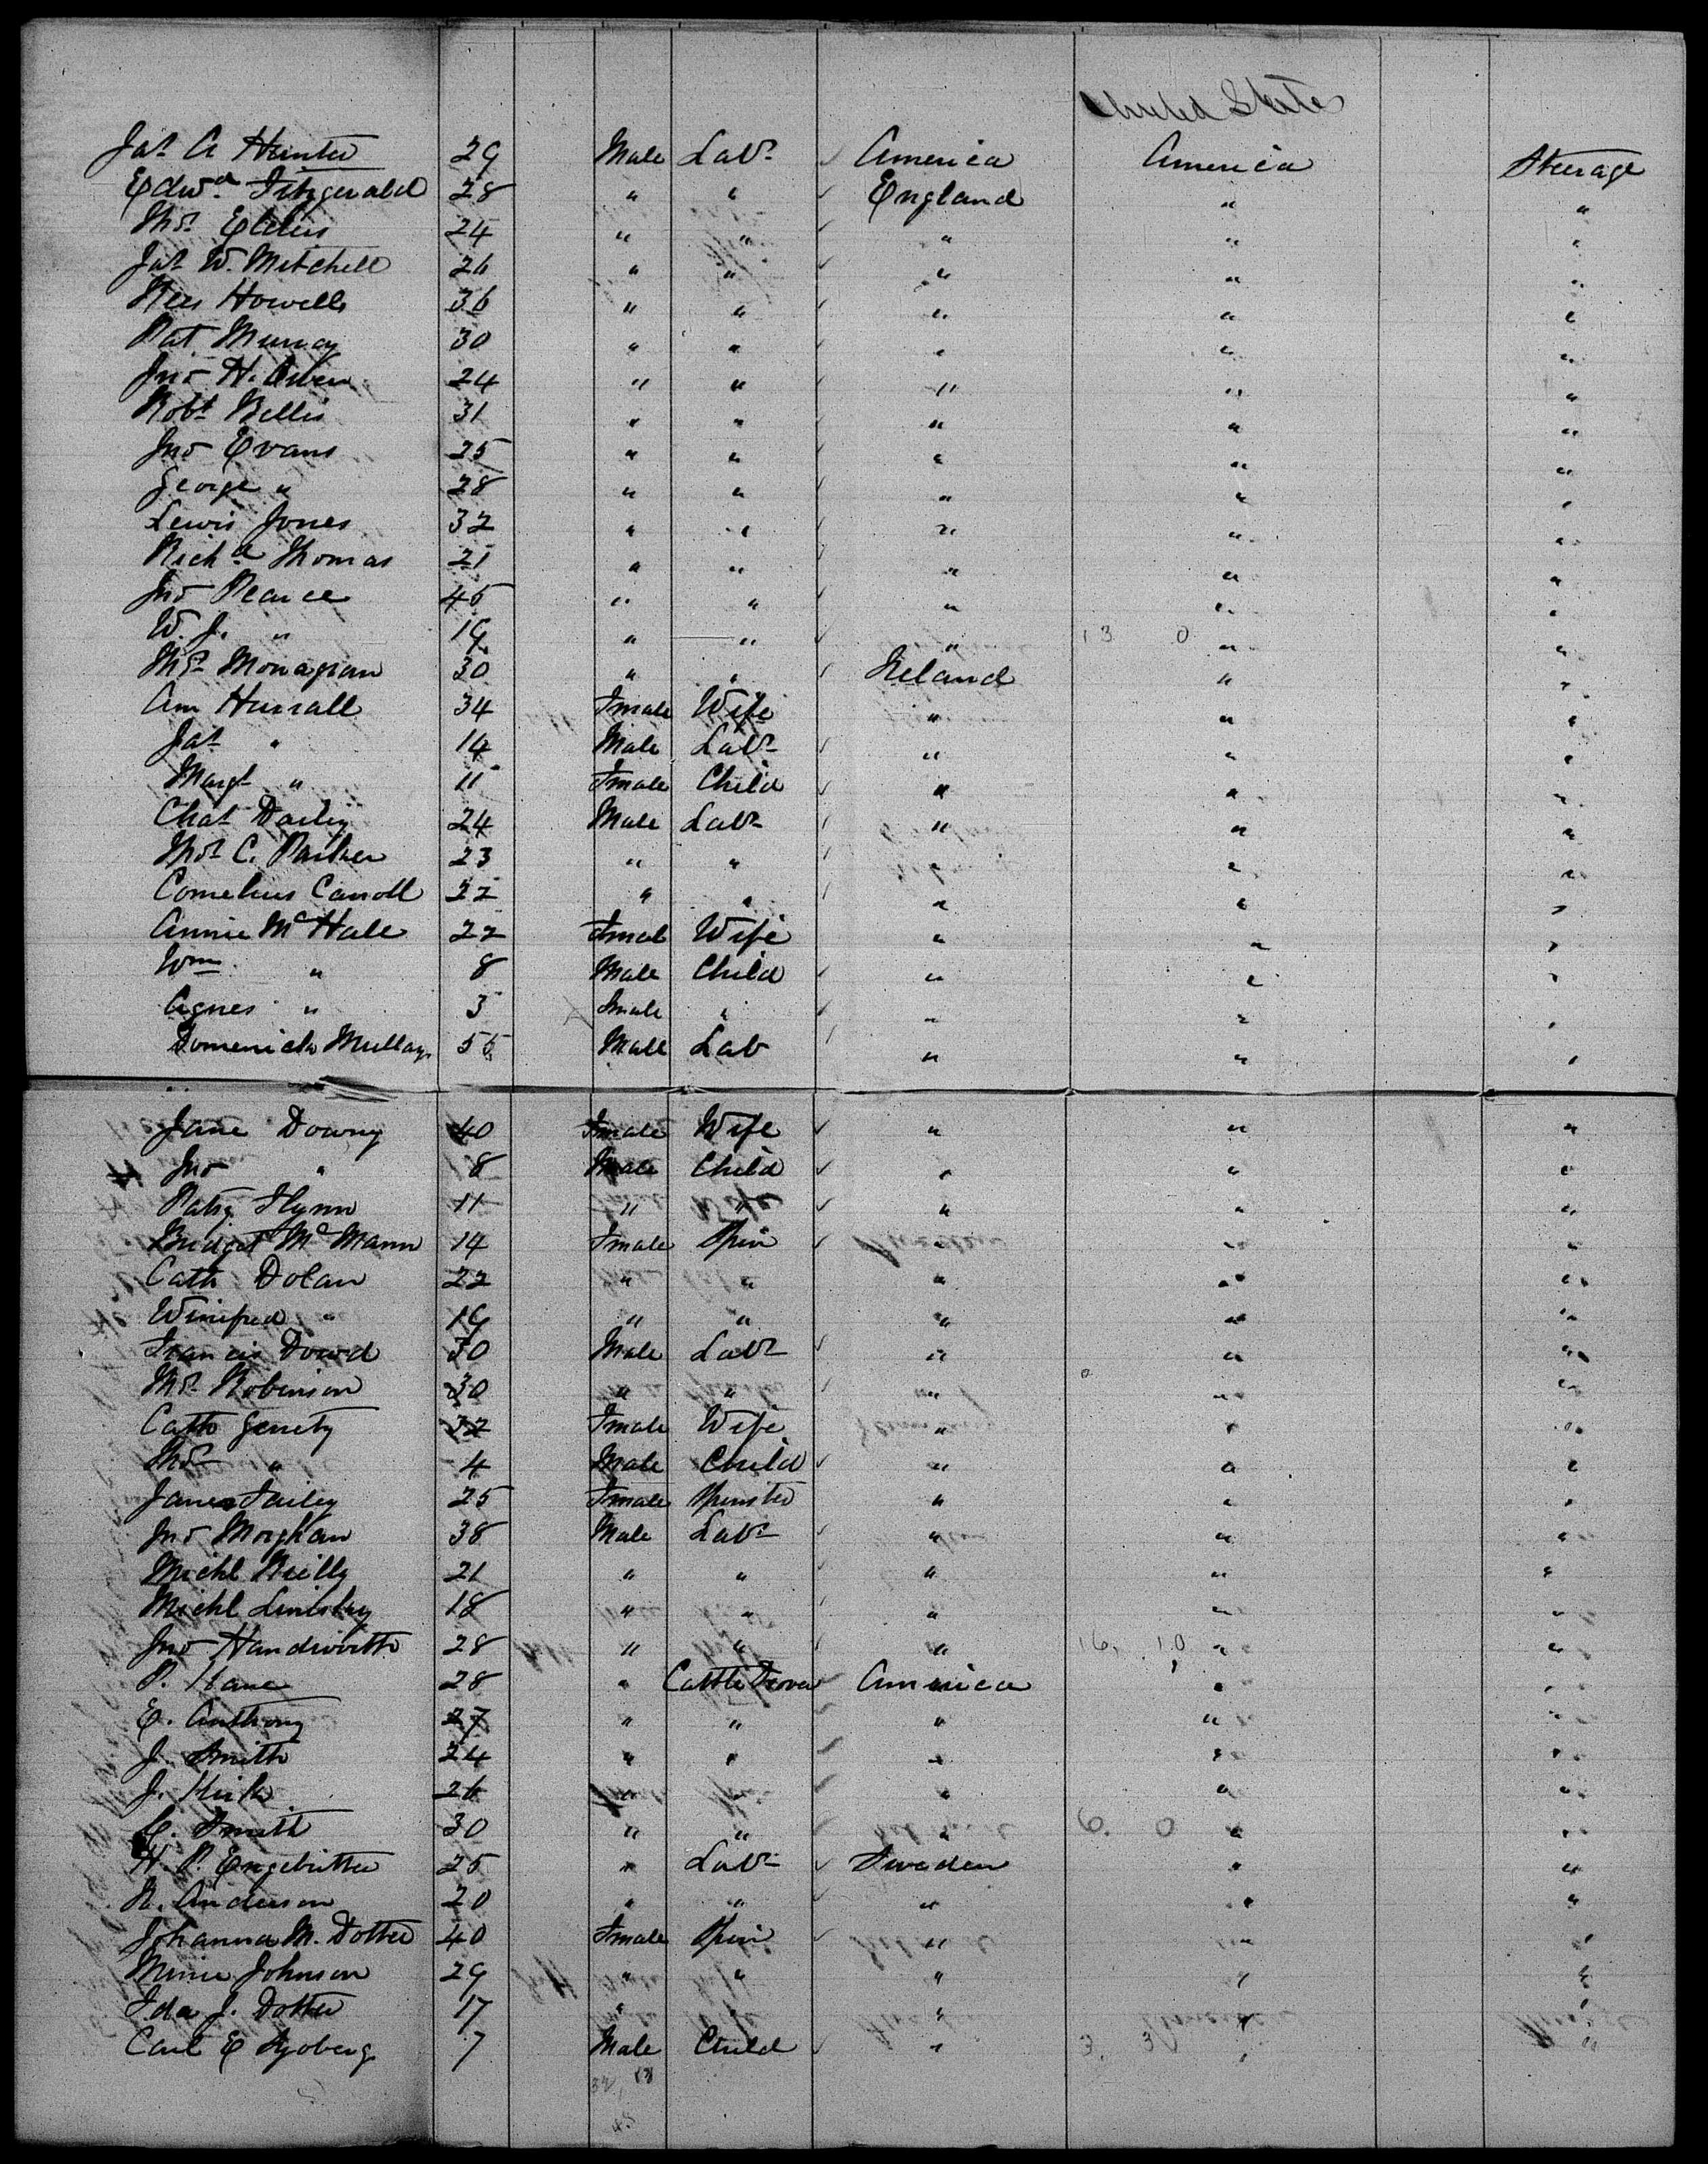 United States
Jas. A Hunter 29 Male Labr. America America Steerage
Edwd. Fitzgerald 28 " " England " "
Thos. Elders 24 " " " " "
Jas. W. Mitchell 26 " " " " "
Rees Howells 36 " " " " "
Pat Murray 30 " " " " "
Jno H. Owen 24 " " " " "
Robt. Bellis 31 " " " " "
Jno Evans 25 " " " " "
George " 28 " " " " "
Lewis Jones 32 " " " " "
Richd. Thomas 21 " " " " "
Jno Pearce 45 " " " " "
W. J. " 19 " " " 13 0 " "
Thos. Monaghan 30 " " Ireland " "
Ann Hurrall 34 Fmale Wife " " "
Jas. " 14 Male Labr. " " "
Margt " 11 Fmale Child " " "
Chas. Dailey 24 Male Labr. " " "
Thos. C. Parker 23 " " " " "
Cornelius Carroll 22 " " " " "
Annie McHale 22 Fmal Wife " " "
Wm. " 8 Male Child " " "
Agnes " 3 Fmale " " " "
Domenick Mullay 55 Male Lab " " "
Jane Downy 40 Fmale Wife " " "
Jno " 8 Male Child " " "
Patk Flynn 11 " " " " "
Bridget McMann 14 Fmale Spin " " "
Cath Dolan 22 " " " " "
Winifred " 19 " " " " "
Francis Dowd 30 Male Labr. " " "
Thos. Robinson 30 " " " " "
Cath Gerrity 32 Fmale Wife " " "
Thos. " 4 Male Child " " "
Jane Farley 25 Fmale Spinster " " "
Jno Morghan 38 Male Labr. " " "
Michl Reilly 21 " " " " "
Michl 18 " " " " "
Jno Handsworth 28 " " " 16. 10 " "
P. Kane 28 " Cattle Drover America " "
E. Anthony 27 " " " " "
J. Smith 24 " " " " "
J. Kirk 26 " " " " "
C. Smith 30 " " " 6. 0 " "
H. P. 25 " Labr. Sweden " "
R. Anderson 20 " " " " "
Johanna M. Dotter 40 Fmale Spin " " "
Minie Johnson 29 " " " " "
Ida J. Dotter 17 " " " " "
Carl E Sjoberg 7 Male Child " 3. 3 " "